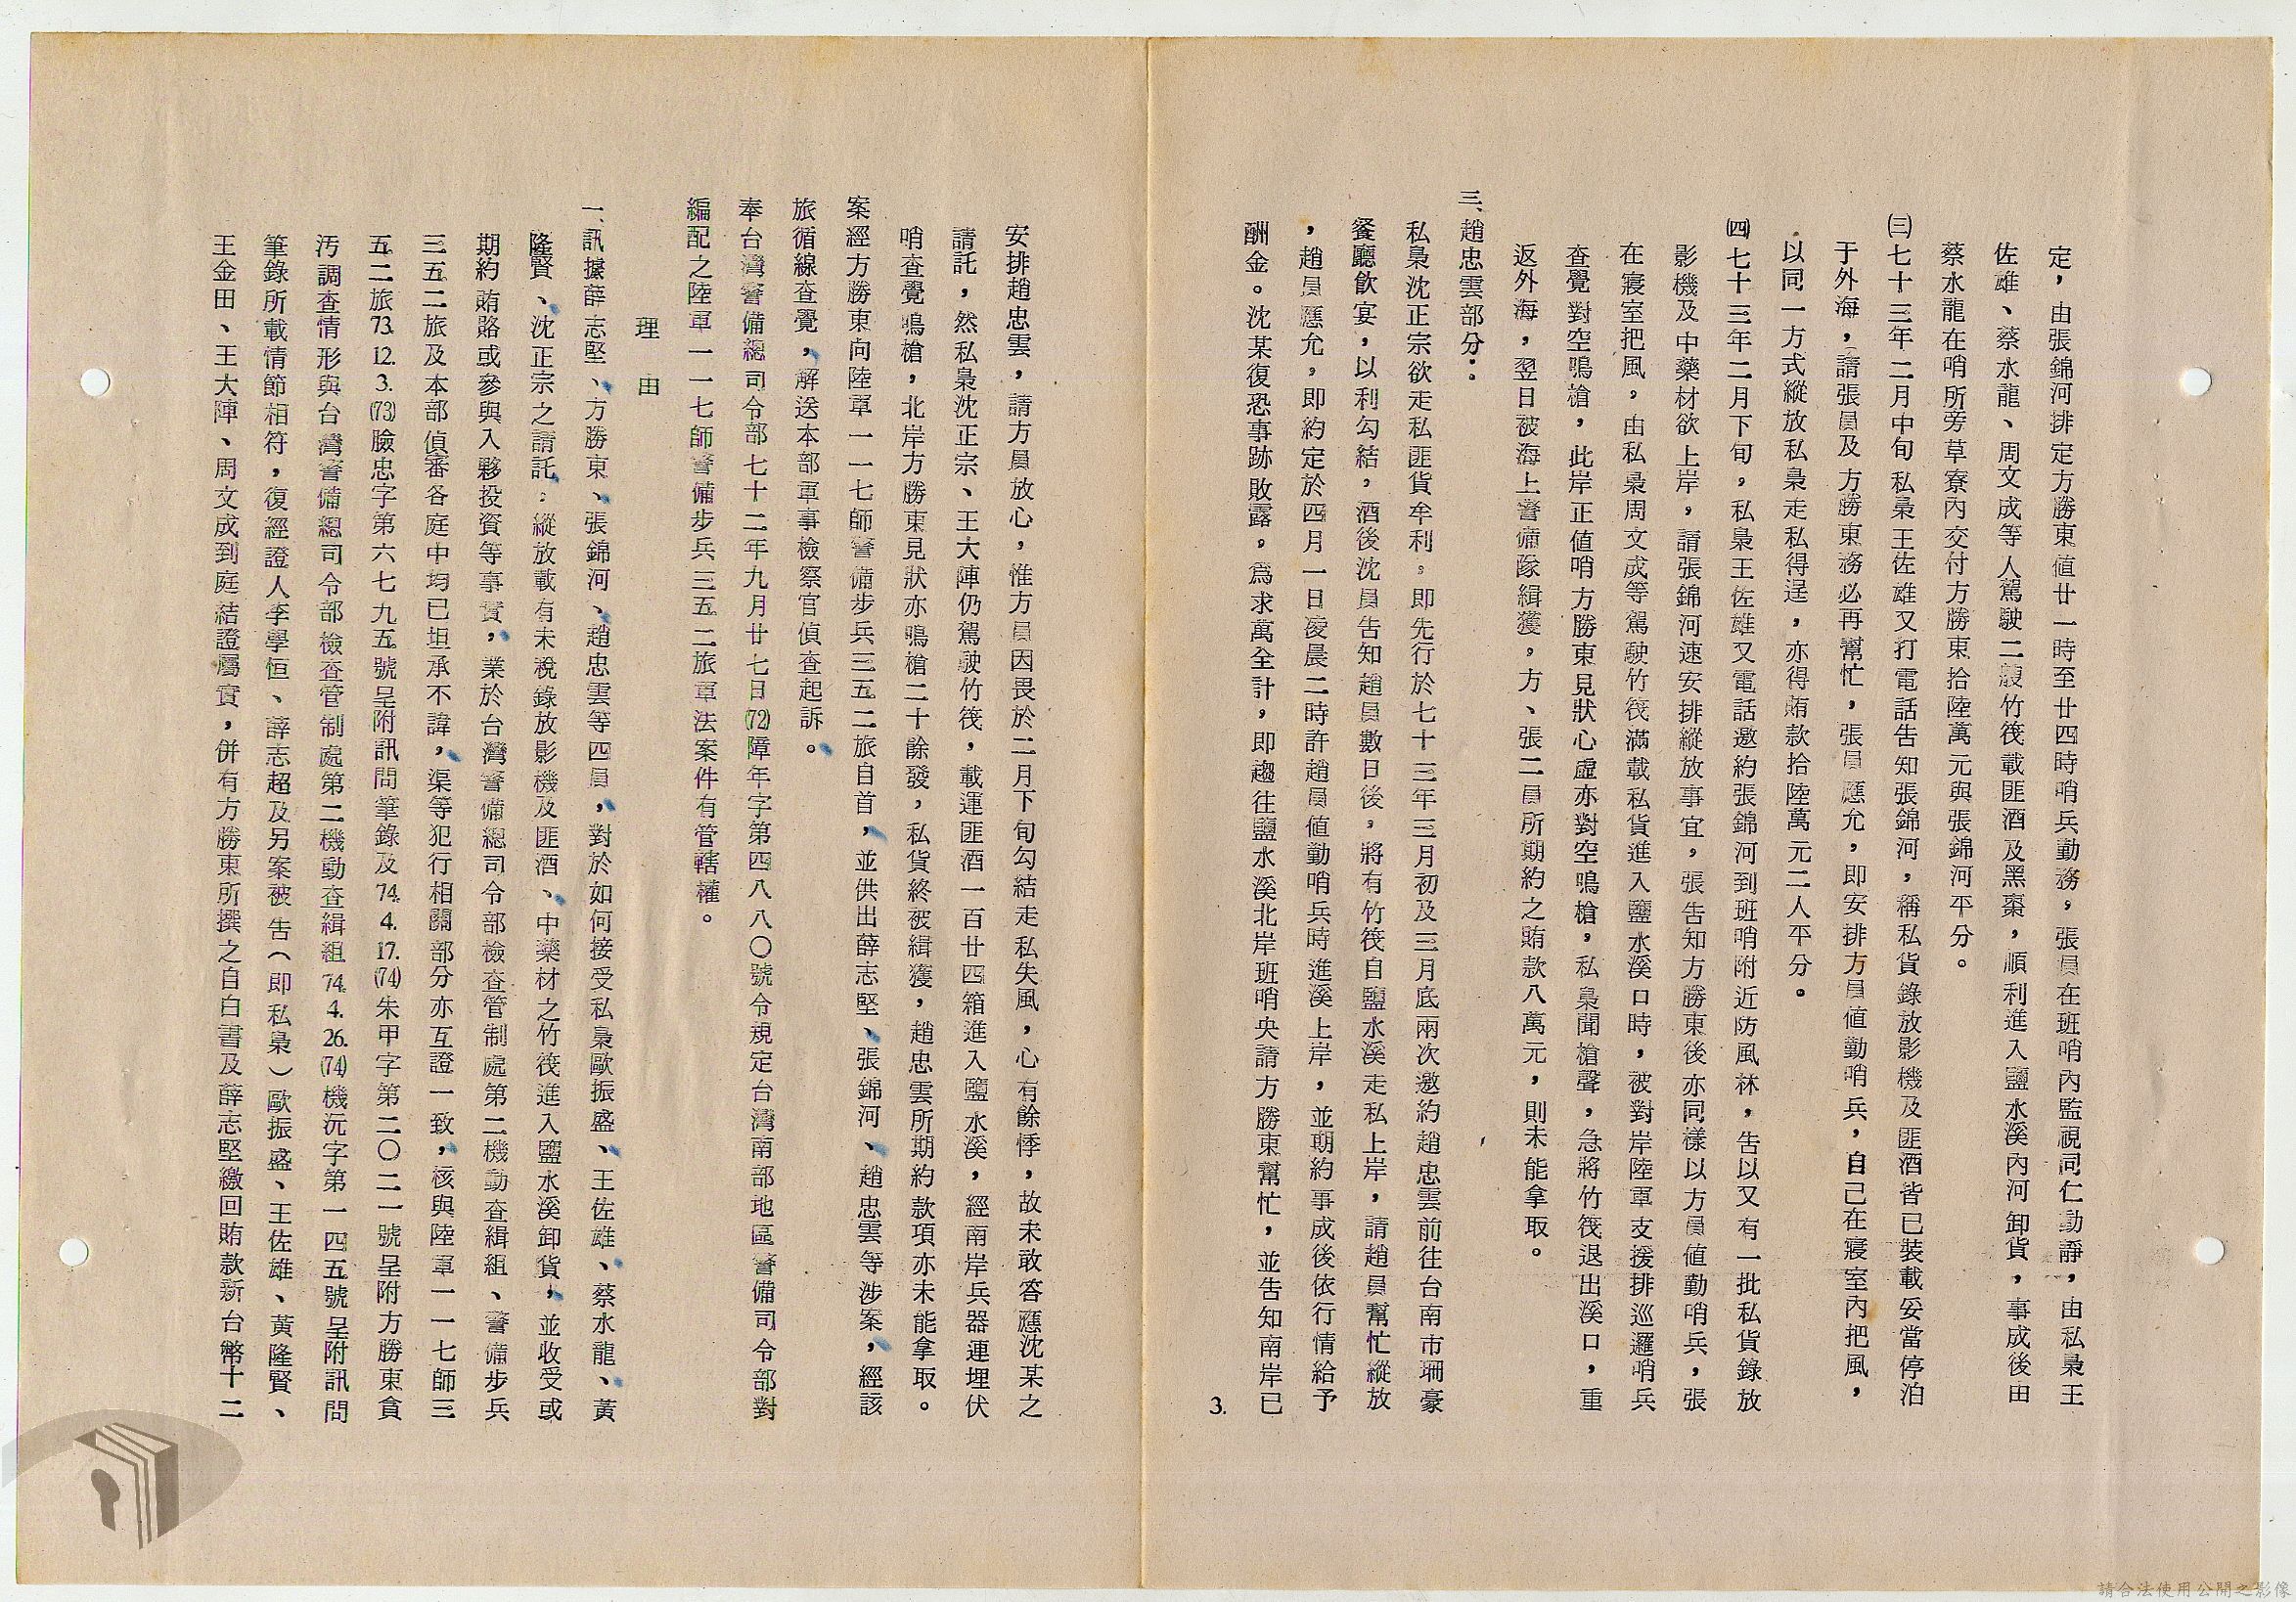 定，由張錦河排定方勝東值廿一時至廿四時哨兵勤務。張員在班哨內監視同仁動靜，由私梟王
佐雄、蔡水龍、周文成等人駕駛二艘竹筏載匪酒及黑棗，順利進入鹽水溪內河卸貨，事成後由
蔡水龍在哨所旁草寮內交付方勝東拾陸萬元與張錦河平分。
㈢七十三年二月中旬私梟王佐雄又打電話告知張錦河，稱私貨錄放影機及匪酒皆已裝載妥當停泊
于外海，請張員及方勝東務必再幫忙，張員應允，即安排方員值勤哨兵，自己在寢室內把風，
以同一方式縱放私梟走私得逞，亦得賄款拾陸萬元二人平分。
㈣七十三年二月下旬，私梟王佐雄又電話邀約張錦河到班哨附近防風林，告以又有一批私貨錄放
影機及中藥材欲上岸，請張錦河速安排縱放事宜，張告知方勝東後亦同樣以方員值勤哨兵，張
在寢室把風，由私梟周文成等駕駛竹筏滿載私貨進入鹽水溪口時，被對岸陸軍支援排巡邏哨兵
查覺對空鳴槍，此岸正值哨方勝東見狀心虛亦對空鳴槍，私梟聞槍聲，急將竹筏退出溪口，重
返外海，翌日被海上警備隊緝獲，方、張二員所期約之賄款八萬元，則未能拿取。
三、趙忠雲部分：
私梟沈正宗欲走私匪貨牟利。即先行於七十三年三月初及三月底兩次邀約趙忠雲前往台南市珊豪
餐廳飲宴，以利勾結，酒後沈員告知趙員數日後，將有竹筏自鹽水溪走私上岸，請趙員幫忙縱放
，趙員應允，即約定於四月一日凌晨二時許趙員值勤哨兵時進溪上岸，並期約事成後依行情給予
酬金。沈某復恐事跡敗露，為求萬全計，即趨往鹽水溪北岸班哨央請方勝東幫忙，並告知南岸已
3.
安排趙忠雲，請方員放心，惟方員因畏於二月下旬勾結走私失風，心有餘悸，故未敢答應沈某之
請託，然私梟沈正宗、王大陣仍駕駛竹筏，載運匪酒一百廿四箱進入鹽水溪，經南岸兵器連埋伏
哨查覺鳴槍，北岸方勝東見狀亦鳴槍二十餘發，私貨終被緝獲，趙忠雲所期約款項亦未能拿取。
案經方勝東向陸軍一一七師警備步兵三五二旅自首，並供出薛志堅、張錦河、趙忠雲等涉案，經該
旅循線查覺，解送本部軍事檢察官偵查起訴。
奉台灣警備總司令部七十二年九月廿七日(72)障年字第四八八〇號令規定台灣南部地區警備司令部對
編配之陸軍一一七師警備步兵三五二旅軍法案件有管轄權。
理由
一、訊據薛志堅、方勝東、張錦河、趙忠雲等四員，對於如何接受私梟歐振盛、王佐雄、蔡水龍、黃
隆賢、沈正宗之請託，縱放載有未稅錄放影機及匪酒、中藥材之竹筏進入鹽水溪卸貨，並收受或
期約賄賂或參與入夥投資等事實，業於台灣警備總司令部檢查管制處第二機動查緝組、警備步兵
三五二旅及本部偵審各庭中均已坦承不諱，渠等犯行相關部分亦互證一致，核與陸軍一一七師三
五二旅73. 12. 3.(73)臉忠字第六七九五號呈附訊問筆錄及74. 4. 17.(74)朱甲字第二〇二一號呈附方勝東貪
汚調查情形與台灣警備總司令部檢查管制處第二機動查緝組74. 4. 26.(74)機沅字第一四五號呈附訊問
筆錄所載情節相符，復經證人李學恒、薛志超及另案被告（即私梟）歐振盛、王佐雄、黃隆賢、
王金田、王大陣、周文成到庭結證屬實，併有方勝東所撰之自白書及薛志堅繳回賄款新台幣十二
請合法使用公開之影像